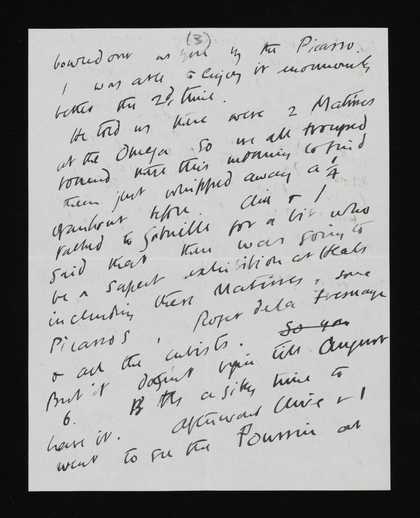 (3)
bowled over as you by the Picasso.
I was able to enjoy it enormously
better the 2nd time.
He told us there were 2 Matisses
at the Omega so we all trouped
round there this morning to find
them just whipped away a 1/4
hour before. Clive & I
rushed to Gabrielle for a bit who
said that there was going to
be a superb exhibition at Heals
including these Matisses, some
Picassos, Roger de la Fresnaye
& all the cubists. So you
But it doesn't open till August
6. a silly time to
have it. Afterward Clive & I
went to see the Poussin at